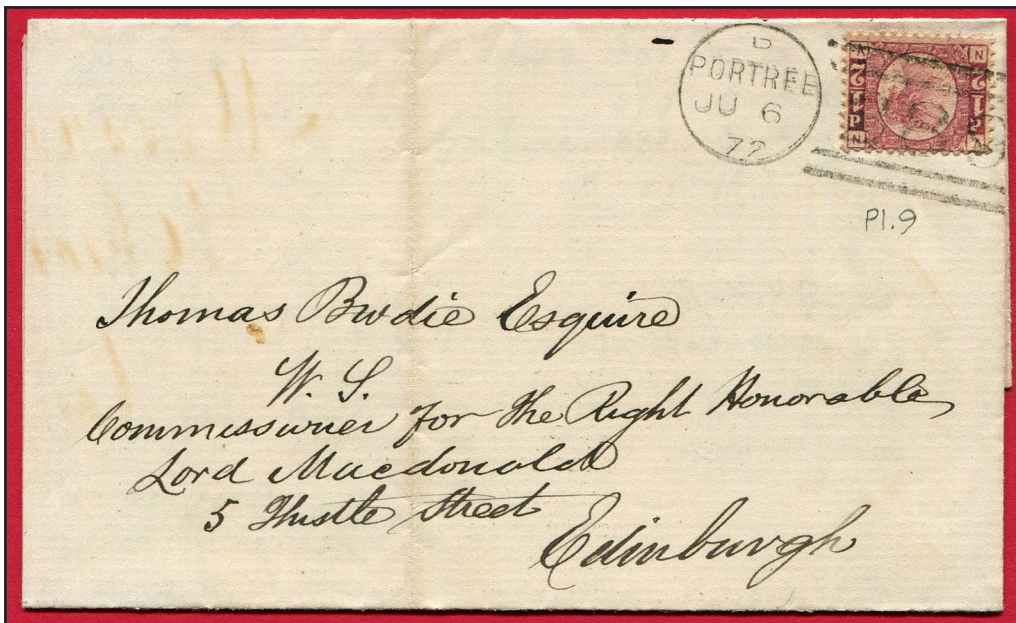 B
PORTREE
JU 6
72
Pl.9
Thomas Brodie Esquire
W. S.
Commissioner for the Right Honorable
Lord Macdonald
5 Thistle Street
Edinburgh